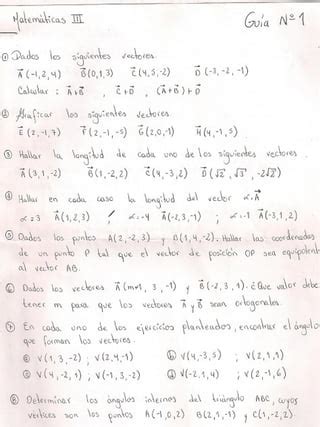 Matemáticas III
Guía Nº 1
① Dados los siguientes vectores.
A(-1,2,4) B(0,1,3) C(4,5,-2) D(-3,-2,-1)
Calcular : A+B , C+D , (A+B)+D
② Graficar los siguientes vectores
E(2,-1,7) F(2,-1,-5) G(2,0,-1) H(4,-1,5)
③ Hallar la longitud de cada uno de los siguientes vectores.
A(3,1,-2) B(1,-2,2) C(4,-3,2) D(√2,√3,-2√2)
④ Hallar en cada caso la longitud del vector α.A
α=3 A(1,2,3) / α=-4 A(-2,3,-1) ; α=-1 A(-3,1,2)
⑤ Dados los puntos A(2,-2,3) y B(1,4,-2). Hallar las coordenadas
de un punto P tal que el vector de posición OP sea equipolente
al vector AB.
⑥ Dados los vectores A(m+1, 3, -1) y B(-2,3,1). ¿Que valor debe
tener m para que los vectores A y B sean ortogonales.
⑦ En cada uno de los ejercicios planteados, encontrar el ángulo
que forman los vectores.
ⓐ V(1,3,-2) ; V(2,4,-1) ⓑ V(4,-3,5) ; V(2,1,1)
ⓒ V(4,-2,1) ; V(-1,3,-2) ⓓ V(-2,1,4) ; V(2,-1,6)
⑧ Determinar los ángulos internos del triángulo ABC, cuyos
vertices son los puntos A(-1,0,2) B(2,1,-1) y C(1,-2,2).